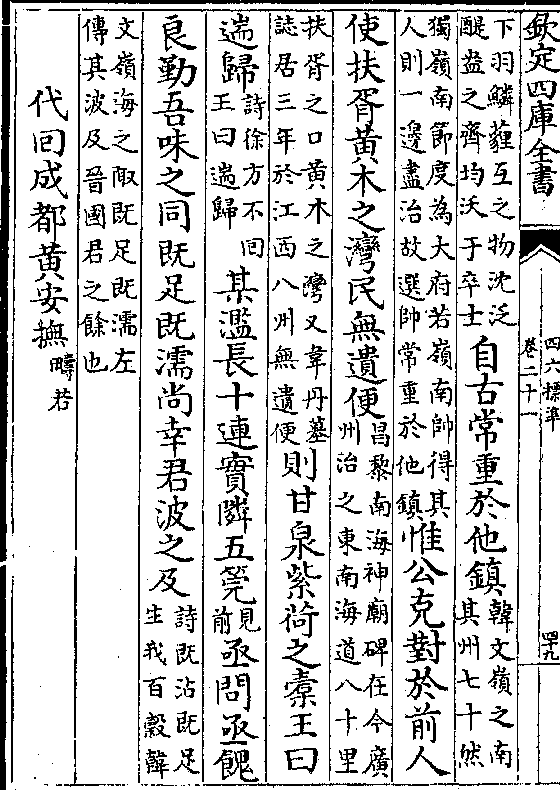 欽定四庫全書
四六標準
卷二十一
罕九
下羽鱗薶互之物沈泛
醍盎之齊均沃于卒士
自古常重於他鎮
韓文嶺之南
其州七十然
獨嶺南節度為大府若嶺南帥得其
人則一邊盡治故選帥常重於他鎮
惟公克對於前人
使扶胥黄木之灣民無遺便
昌黎南海神廟碑在今廣
州治之東南海道八十里
扶胥之口黄木之灣又韋丹墓
誌居三年於江西八州無遺便
則甘泉紫荷之槖王曰
遄歸
詩徐方不回
王曰遄歸
某濫長十連實隣五筦
見
前
亟問亟餽
良勤吾味之同既足既濡尚幸君波之及
詩既沾既足
生我百穀韓
文嶺海之陬既足既濡左
傳其波及晉國君之餘也
代回成都黄安撫
疇若